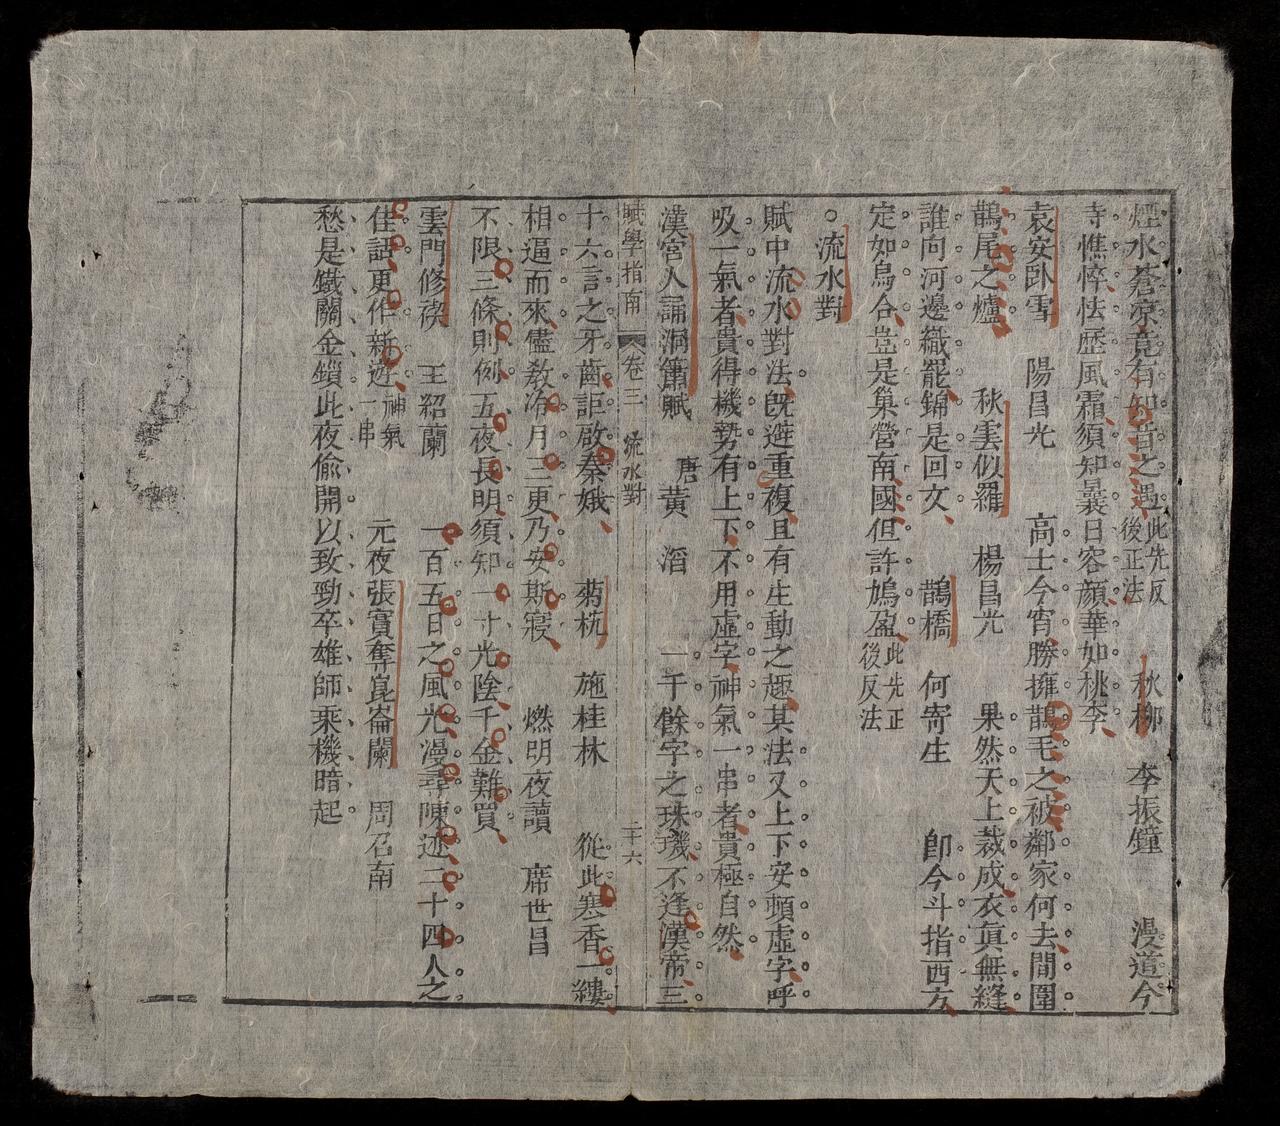 煙水蒼凉竟有知音之遇此先反後正法 秋柳 李振鐘 漫道今
寺憔悴怯歷風霜須知曩日容顏華如桃李
袁安臥雪 陽昌光 高士今宵勝擁鵲毛之被鄰家何去間圍
鵲尾之爐 秋雲似羅 楊昌光 果然天上裁成衣眞無縫
誰向河邊織罷錦是回文 鵲橋 何寄生 卽今斗指西方
定如烏合豈是巢營南國但許鳩盈此先正後反法
流水對
賦中流水對法旣避重複且有生動之趣其法又上下安頓虛字呼
吸一氣者貴得機勢有上下不用虛字神氣一串者貴極自然
漢宮人誦洞簫賦 唐黃滔 一千餘字之珠璣不逢漢帝三
賦學指南 卷三 流水對 二十六
十六言之牙齒詎啟秦娥 菊枕 施桂林 從此寒香一縷
相逼而來儘教冷月三更乃安斯寢 燃明夜讀 席世昌
不限三條則例五夜長明須知一寸光陰千金難買
雲門修禊 王紹蘭 一百五日之風光漫尋陳迹二十四人之
佳話更作新遊神氣一串 元夜張賓奪崑崙關 周召南
愁是鐵關金鎖此夜偷開以致勁卒雄師乘機暗起